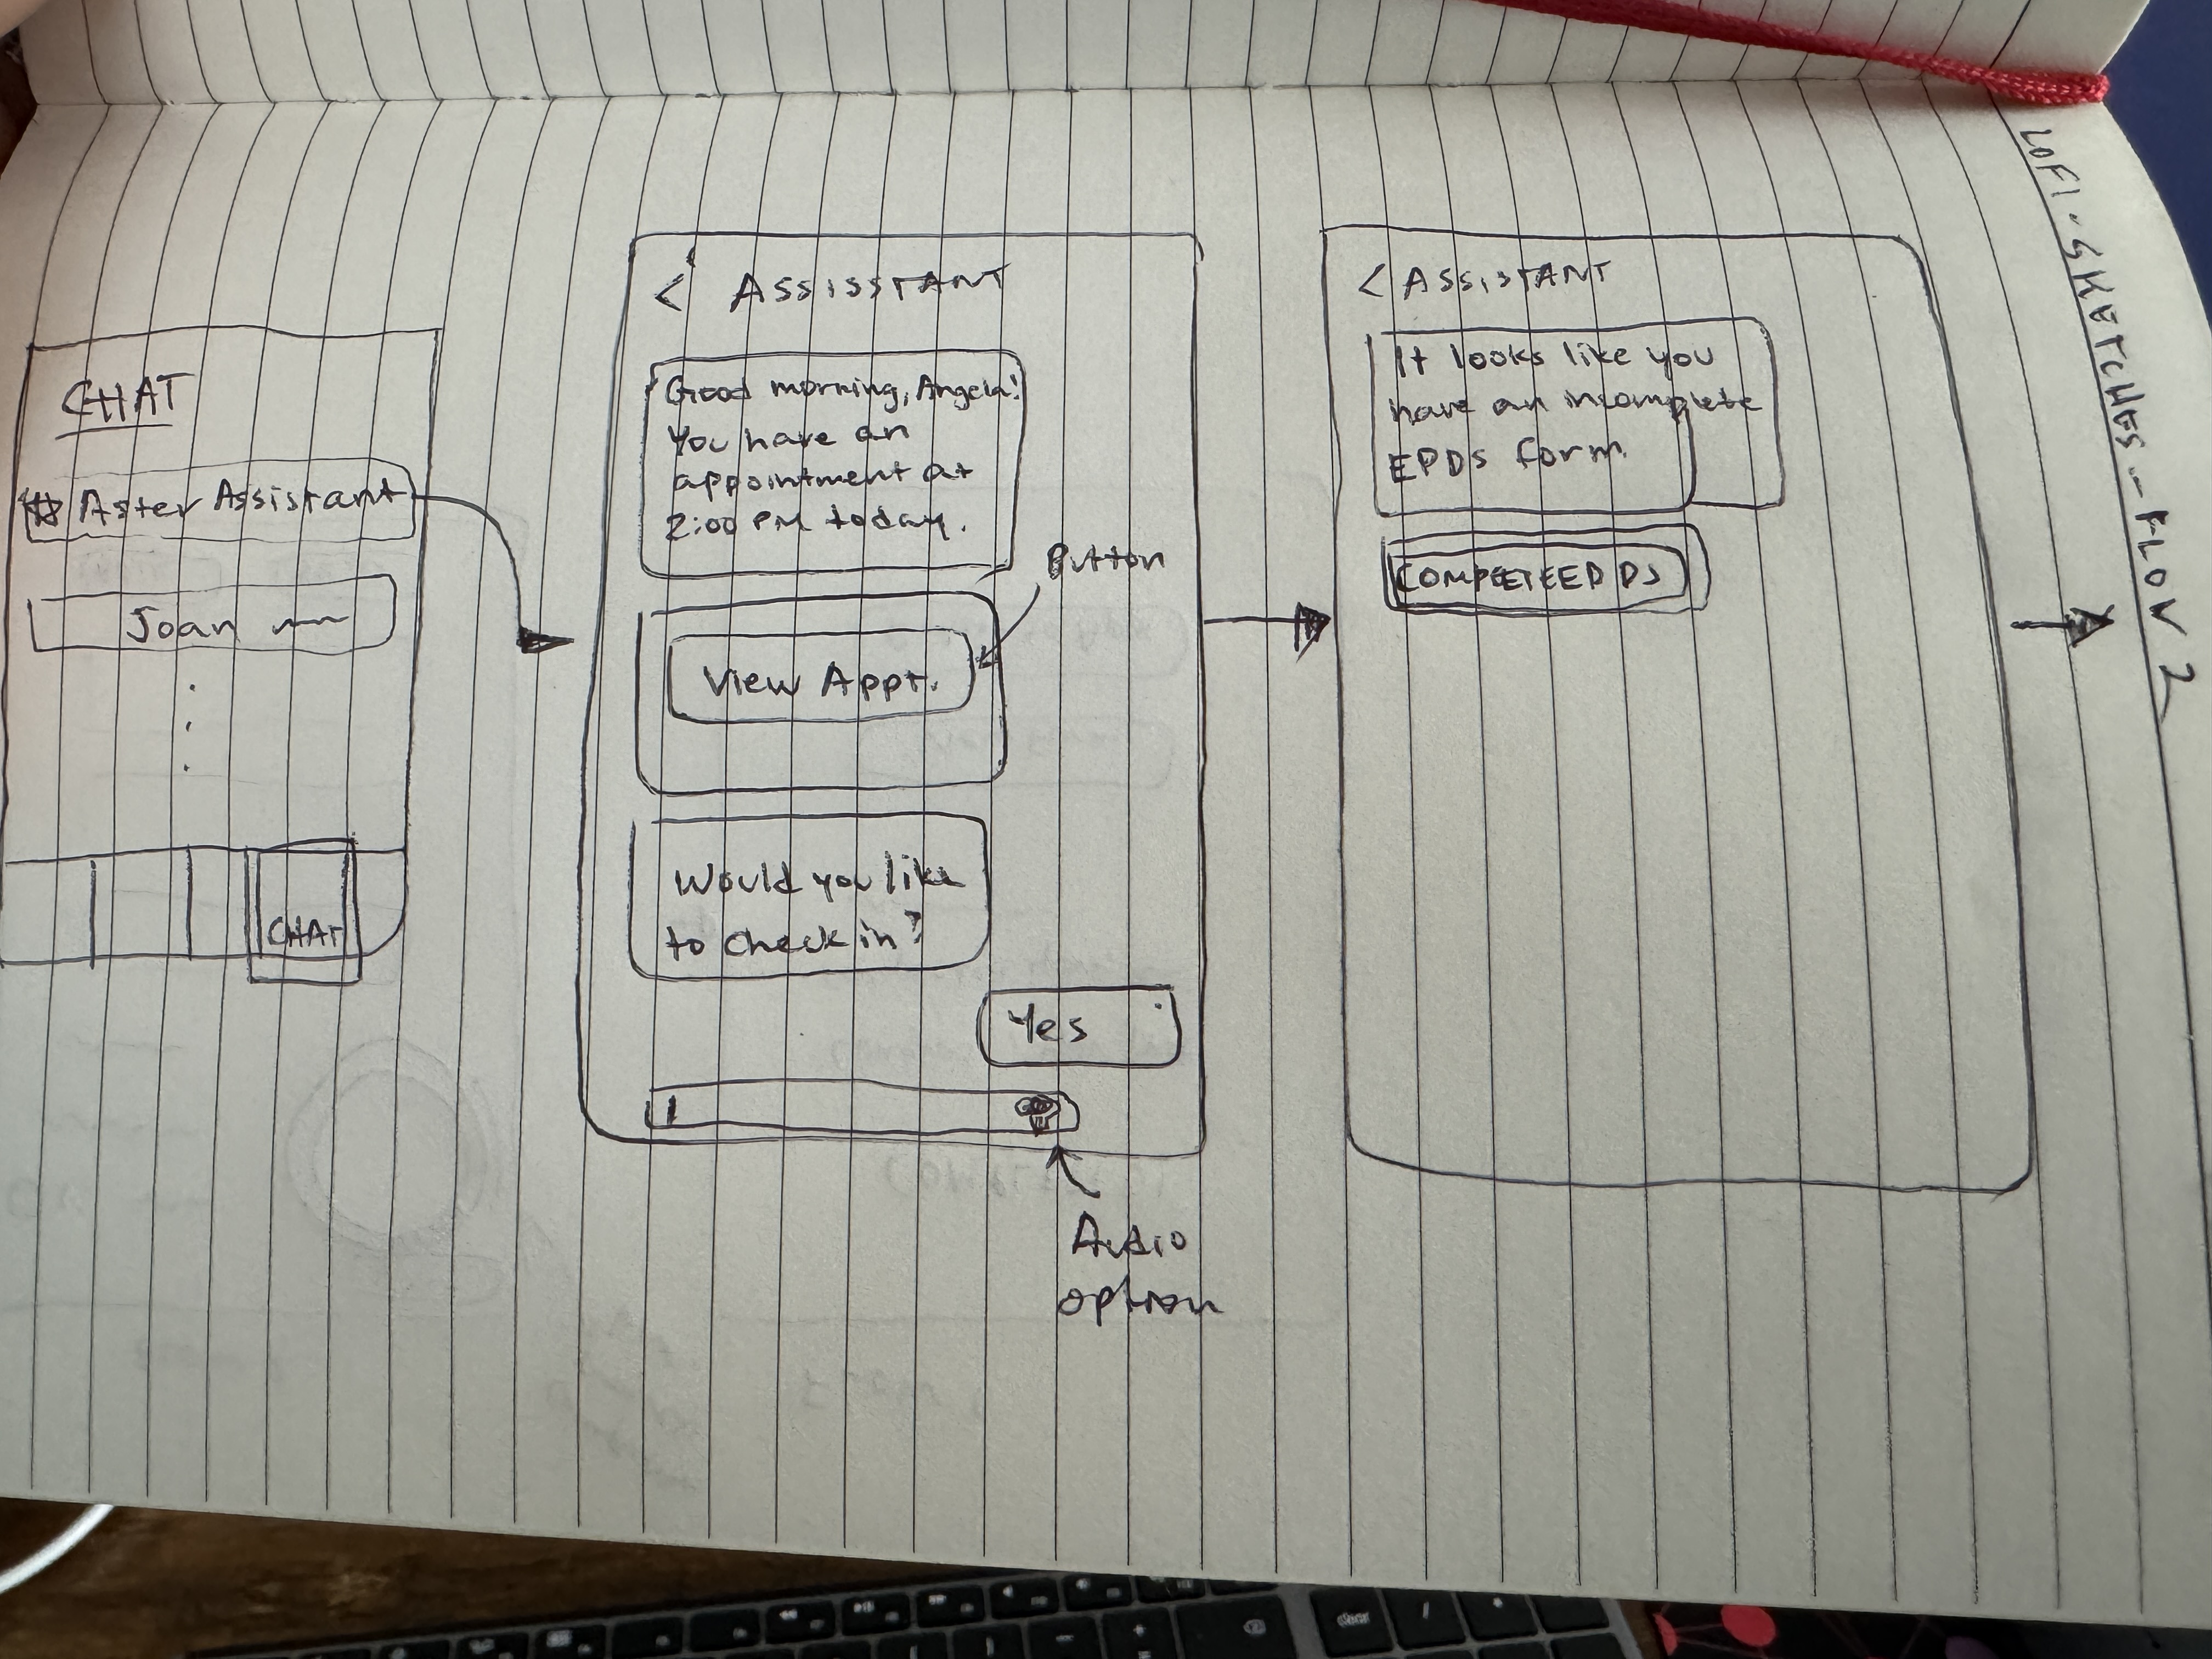 LOFI-SKETCHES-FLOW 2
CHAT
Aster Assistant
Joan
CHAT
< ASSISSTANT
Good morning, Angela!
You have an
appointment at
2:00 PM today.
Button
View Appt.
Would you like
to check in?
Yes
Audio
option
< ASSISTANT
It looks like you
have an incomplete
EPDS form.
COMPLETE EPDS